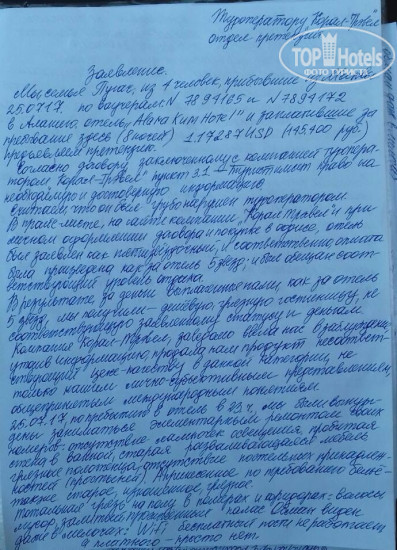 Туроператору Корал-Тревел
отдел претензий
TOP Hotels
ФОТО ТУРИСТА
Заявление.
Мы семья из 4 человек, прибывшие
25.07.17 по ваучерам N 7899165 и N 7899172
в Аланию, отель Alara Kum Hotel и заплатившие за
пребывание здесь (5 ночей) USD руб.)
предъявляем претензию.
Согласно договору заключенному с компанией туропера-
тором Корал-Тревел пункт 3.1 - турист имеет право на
необходимую и достоверную информацию
Считаем, что он был грубо нарушен туроператором.
В прайс-листе, на сайте компании "Корал Тревел" и при
личном оформлении договора и покупке в офисе, отель
был заявлен как пятизвездочный, и соответственно, оплата
была произведена как за отель 5 звезд, и был обещан соот-
ветствующий уровень отдыха.
В результате за деньги выплаченные нами, как за отель
5 звезд, мы получили - дешевую, грязную гостиницу, не
соответствующую заявленному статусу и деньгам.
Компания Корал-Тревел, заведомо ввела нас в заблуждение,
утаив информацию, продала нам продукт несоответ-
ствующий цене-качеству в данной категории, не
только нашим лично-субъективным представлениям,
общепринятым международным понятиям.
25.07.17 по прибытию в отель в мы были вынуж-
дены заниматься элементарным ремонтом своих
номеров: отсутствие лампочек освещения, пробитая
стена в ванной, старая разваливающаяся мебель
грязные полотенца, отсутствие постельных принадлеж-
ностей (простыней). А принесенное по требованию белье -
также старое, изношенное, грязное.
Тотальная грязь на полу в номерах и коридорах: волосы
мусор, залитый палас. Обман виден
даже в мелочах: Wi-Fi бесплатный почти не работает
а платного - просто нет.